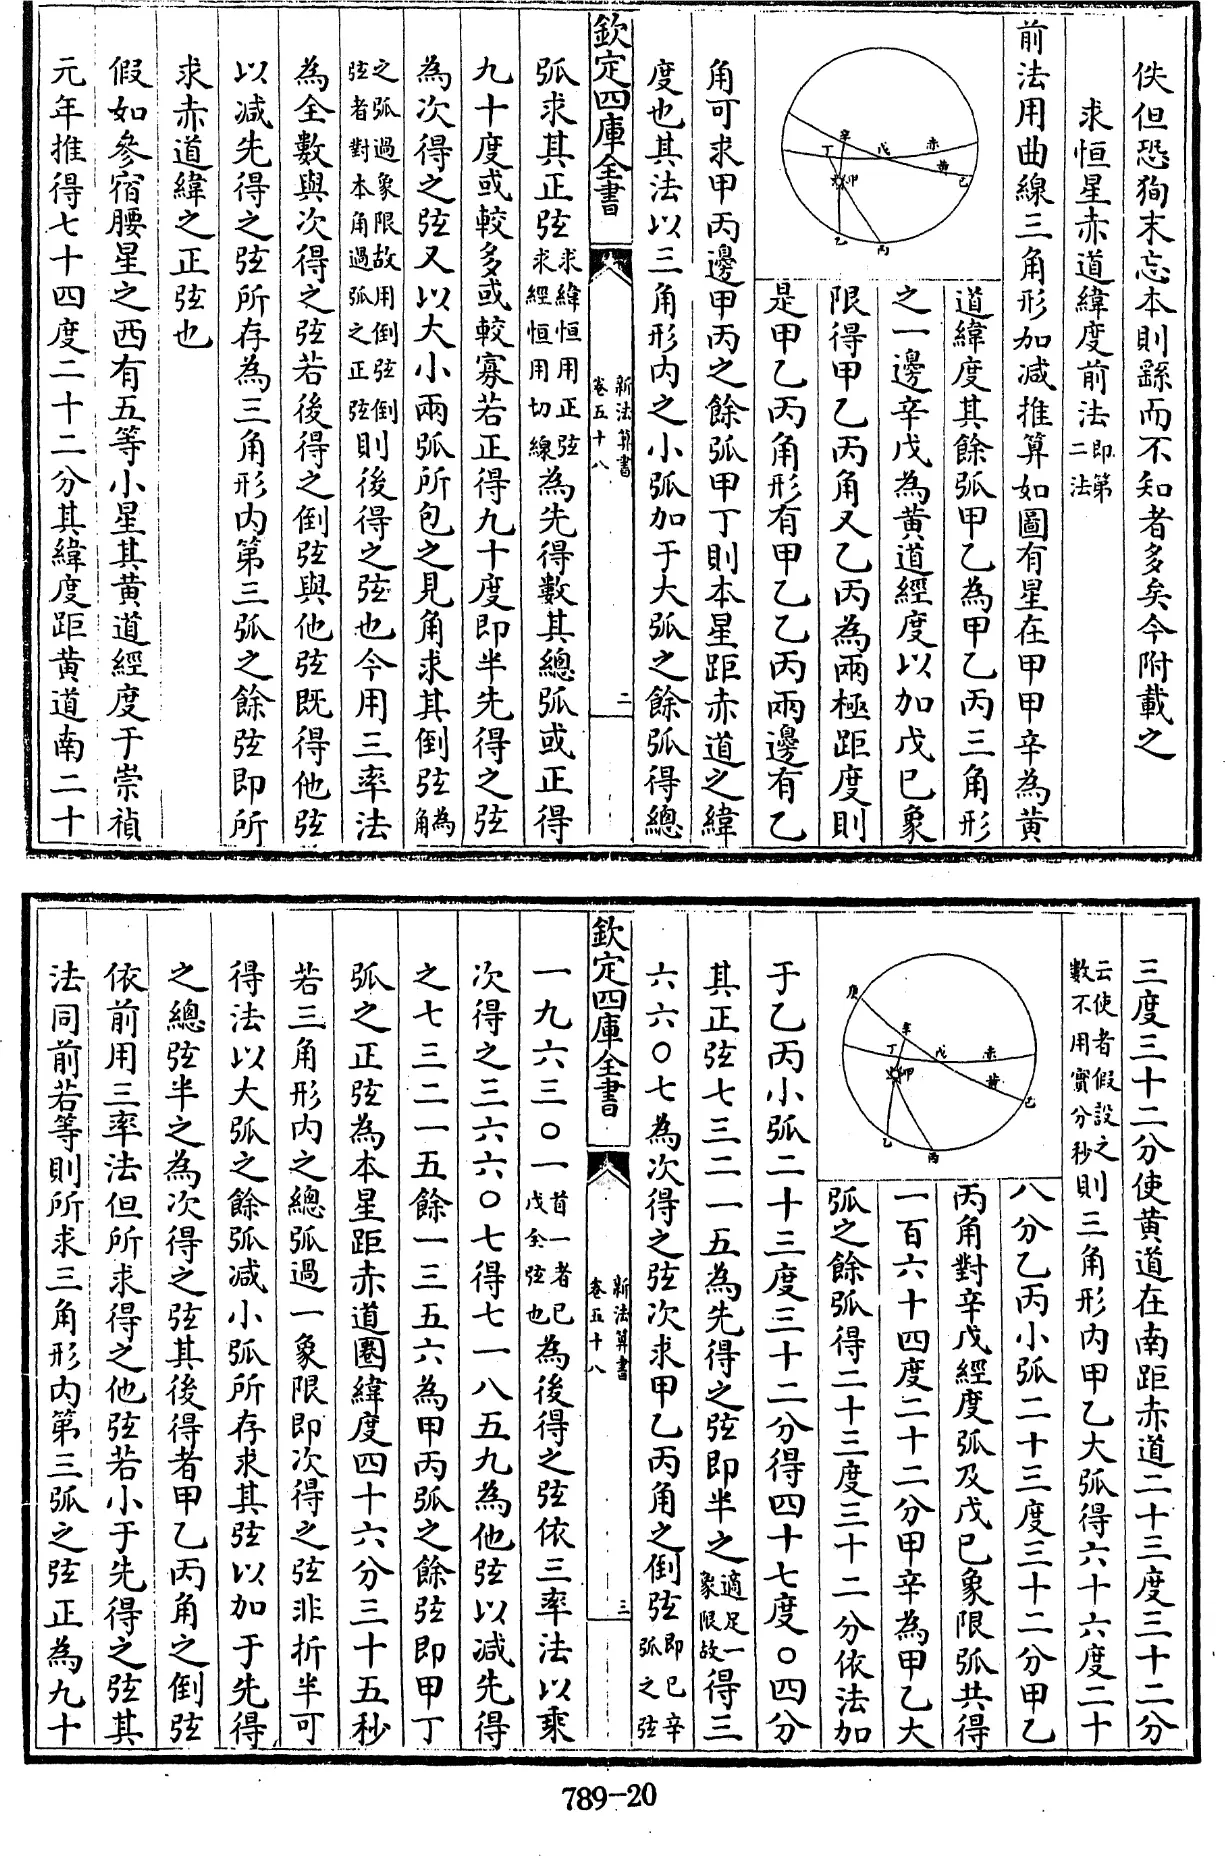 佚但恐狥末忘本則繇而不知者多矣今附載之
求恒星赤道緯度前法即第二法
前法用曲線三角形加減推算如圖有星在甲甲辛為黄
道緯度其餘弧甲乙為甲乙丙三角形
之一邊辛戊為黄道經度以加戊巳象
限得甲乙丙角又乙丙為兩極距度則
是甲乙丙角形有甲乙乙丙兩邊有乙
辛
丁
戊
赤
黄
巳
甲
乙
丙
角可求甲丙邊甲丙之餘弧甲丁則本星距赤道之緯
度也其法以三角形内之小弧加于大弧之餘弧得總
欽定四庫全書
新法算書
卷五十八
二
弧求其正弦求緯恒用正弦求經恒用切線為先得數其總弧或正得
九十度或較多或較寡若正得九十度即半先得之弦
為次得之弦又以大小兩弧所包之見角求其倒弦角為
之弧過象限故用倒弦倒弦者對本角過弧之正弦則後得之弦也今用三率法
為全數與次得之弦若後得之倒弦與他弦既得他弦
以減先得之弦所存為三角形内第三弧之餘弦即所
求赤道緯之正弦也
假如參宿腰星之西有五等小星其黄道經度于崇禎
元年推得七十四度二十二分其緯度距黄道南二十
三度三十二分使黄道在南距赤道二十三度三十二分
云使者假設之數不用實分秒則三角形内甲乙大弧得六十六度二十
八分乙丙小弧二十三度三十二分甲乙
丙角對辛戊經度弧及戊巳象限弧共得
一百六十四度二十二分甲辛為甲乙大
弧之餘弧得二十三度三十二分依法加
庚
辛
丁
戊
赤
黄
巳
甲
乙
丙
于乙丙小弧二十三度三十二分得四十七度〇四分
其正弦七三二一五為先得之弦即半之適足一象限故得三
六六〇七為次得之弦次求甲乙丙角之倒弦即巳辛弧之弦
欽定四庫全書
新法算書
卷五十八
三
一九六三〇一首一者巳戊全弦也為後得之弦依三率法以乘
次得之三六六〇七得七一八五九為他弦以減先得
之七三二一五餘一三五六為甲丙弧之餘弦即甲丁
弧之正弦為本星距赤道圈緯度四十六分三十五秒
若三角形内之總弧過一象限即次得之弦非折半可
得法以大弧之餘弧減小弧所存求其弦以加于先得
之總弦半之為次得之弦其後得者甲乙丙角之倒弦
依前用三率法但所求得之他弦若小于先得之弦其
法同前若等則所求三角形内第三弧之弦正為九十
789-20